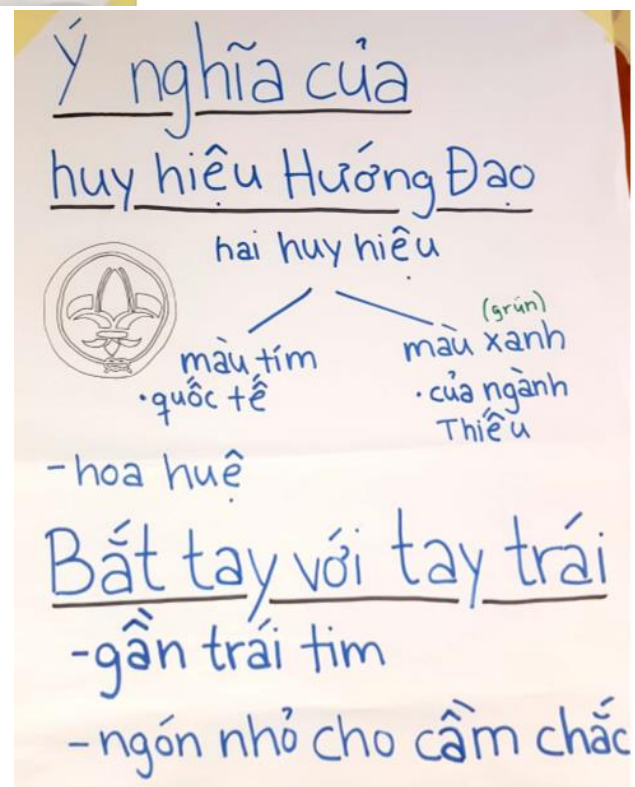 Ý nghĩa của
huy hiệu Hướng Đạo
hai huy hiệu
màu tím
·quốc tế
(grün)
màu xanh
·của ngành
Thiếu
-hoa huệ
Bắt tay với tay trái
-gần trái tim
-ngón nhỏ cho cầm chắc